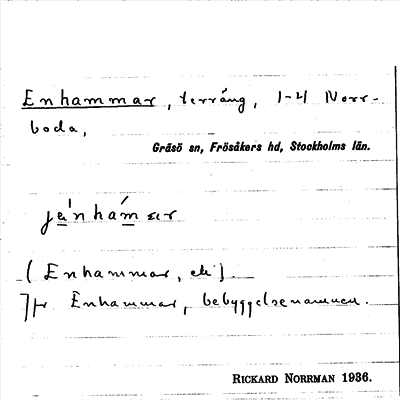 Enhammar, terräng, 1-4 Norr-
boda,
Gräsö sn, Frösåkers hd, Stockholms län.
jä́nhám ar
(Enhammar, ek)
Jfr Enhammar, bebyggelsenamnen.
RICKARD NORRMAN 1936.